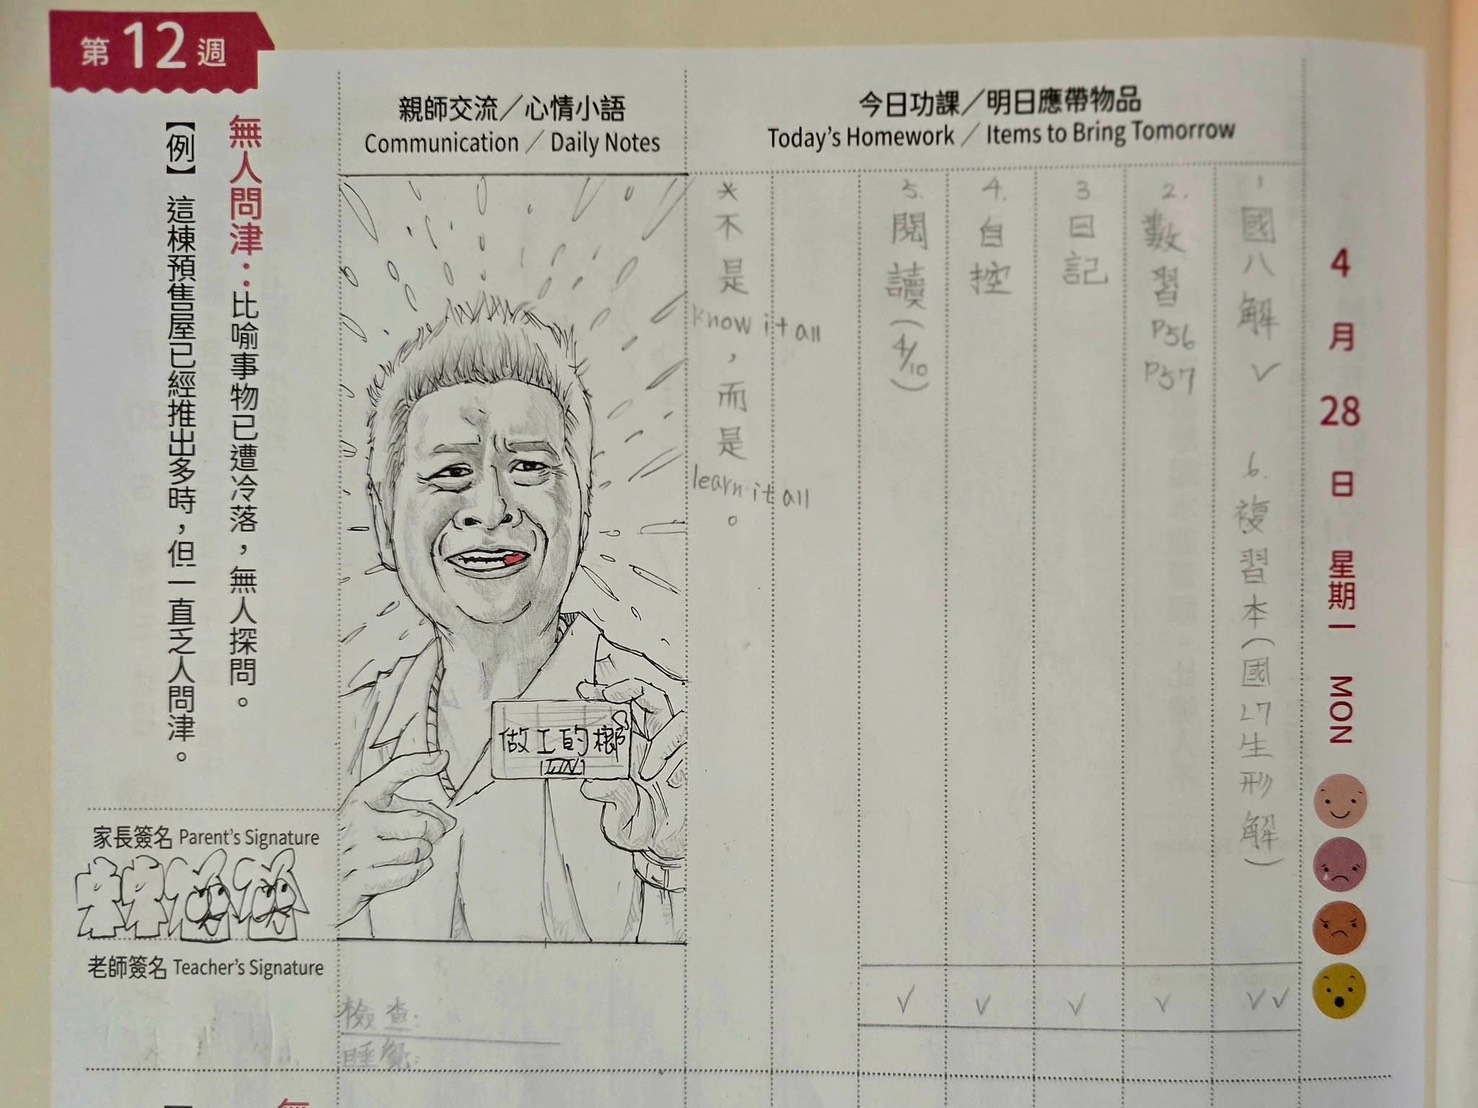 第12週
4月28日 星期一 MON
今日功課／明日應帶物品
Today's Homework ／ Items to Bring Tomorrow
1 國八解 ✓
6. 複習本(國L7生形解)
2. 數習 P56 P57
3 日記
4. 自控
5. 閱讀(4/10)
*不是
know it all
，而是
learn it all
。
✓ ✓ ✓ ✓ ✓✓
親師交流／心情小語
Communication ／ Daily Notes
做工的
檢查:
睡覺:
無人問津：比喻事物已遭冷落，無人探問。
【例】這棟預售屋已經推出多時，但一直乏人問津。
家長簽名 Parent's Signature
老師簽名 Teacher's Signature